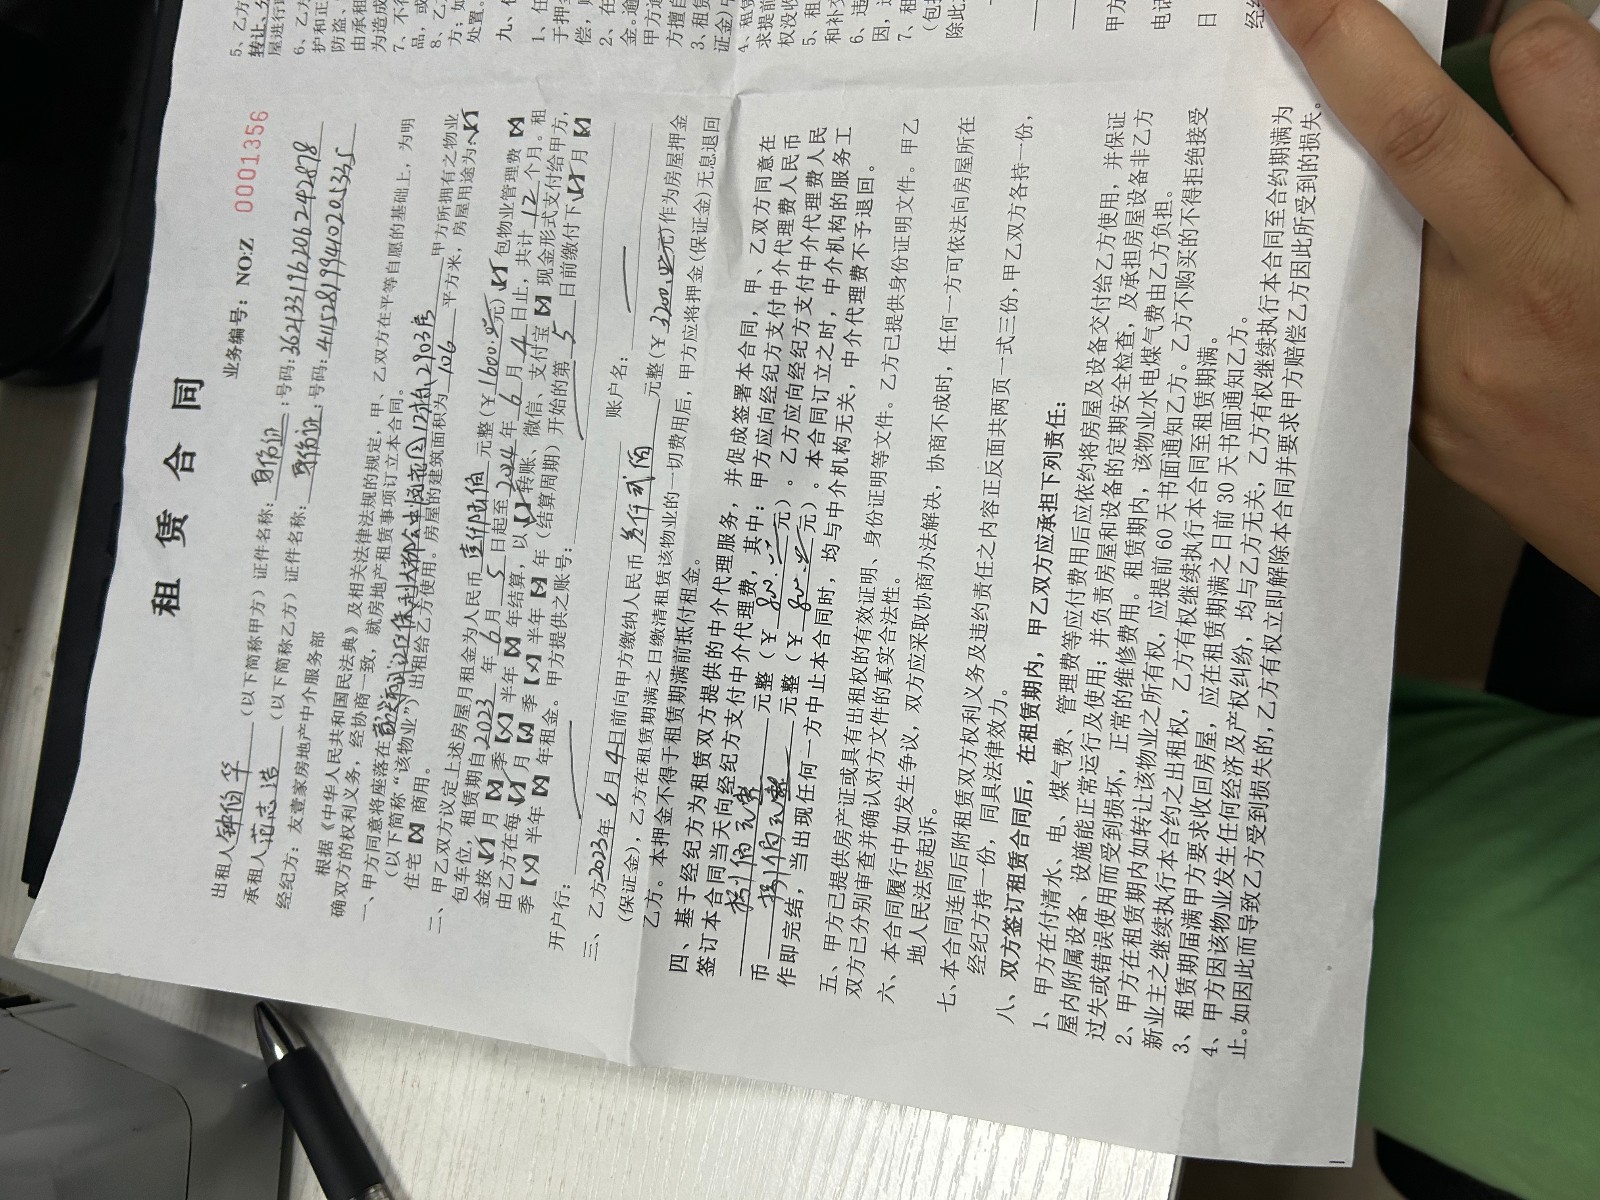 租赁合同
业务编号：NO:Z 0001356
出租人钟伯华（以下简称甲方）证件名称：身份证；号码：362133196206242878
承租人范志造（以下简称乙方）证件名称：身份证；号码：411528199440205335
经纪方：友壹家房地产中介服务部
根据《中华人民共和国民法典》及相关法律法规的规定，甲、乙双方在平等自愿的基础上，为明
确双方的权利义务，经协商一致，就房地产租赁事项订立本合同。
一、甲方同意将座落在 2903房 甲方所拥有之物业
（以下简称“该物业”）出租给乙方使用。房屋的建筑面积为106平方米，房屋用途为【√】
住宅【×】商用。
二、甲乙双方议定上述房屋月租金为人民币壹仟陆佰元整（￥1600.00元）【√】包物业管理费【×】
包车位，租赁期自2023年6月5日起至2024年6月4日止，共计12个月。租
金按【√】月【×】季【×】半年【×】年结算，以【√】转账、微信、支付宝【×】现金形式支付给甲方，
由乙方在每【√】月【×】季【×】半年【×】年（结算周期）开始的第5日前缴付下【√】月【×】
季【×】半年【×】年租金。甲方提供之账号：
开户行： 账户名：
三、乙方2023年6月4日前向甲方缴纳人民币叁仟贰佰元整（￥3200.00元）作为房屋押金
（保证金），乙方在租赁期满之日缴清租赁该物业的一切费用后，甲方应将押金（保证金）无息退回
乙方。本押金不得于租赁期满前抵付租金。
四、基于经纪方为租赁双方提供的中介代理服务，并促成签署本合同，甲、乙双方同意在
签订本合同当天向经纪方支付中介代理费，其中：甲方应向经纪方支付中介代理费人民币
元整（￥800.00元）。乙方应向经纪方支付中介代理费人民
币 元整（￥800.00元）。本合同订立之时，中介机构的服务工
作即完结，当出现任何一方中止本合同时，均与中介机构无关，中介代理费不予退回。
五、甲方已提供房产证或具有出租权的有效证明、身份证明等文件。乙方已提供身份证明文件。甲乙
双方已分别审查并确认对方文件的真实合法性。
六、本合同履行中如发生争议，双方应采取协商办法解决，协商不成时，任何一方可依法向房屋所在
地人民法院起诉。
七、本合同连同后附租赁双方权利义务及违约责任之内容正反面共两页一式三份，甲乙双方各持一份，
经纪方持一份，同具法律效力。
八、双方签订租赁合同后，在租赁期内，甲乙双方应承担下列责任：
1、甲方在付清水、电、煤气费、管理费等应付费用后应依约将房屋及设备交付给乙方使用，并保证
屋内附属设备、设施能正常运行及使用；并负责房屋和设备的定期安全检查，及承担房屋设备非乙方
过失或错误使用而受到损坏，正常的维修费用。租赁期内，该物业水电煤气费由乙方负担。
2、甲方在租赁期内如转让该物业之所有权，应提前60天书面通知乙方。乙方不购买的不得拒绝接受
新业主之继续执行本合约之出租权，乙方有权继续执行本合同至租赁期满。
3、租赁期届满甲方要求收回房屋，应在租赁期满之日前30天书面通知乙方。
4、甲方因该物业发生任何经济及产权纠纷，均与乙方无关，乙方有权继续执行本合同至合约期满为
止。如因此而导致乙方受到损失的，乙方有权立即解除本合同并要求甲方赔偿乙方因此所受到的损失。
1
5、乙方
转让、分
屋进行
6、乙方
护和正
防盗、
由承租
为造成
7、不得
品，或
8、乙
方；如
处置。
九、
1、任
于押金
偿，
2、在
金。逾
甲方
方擅自
3、租赁
证金）
4、租赁
求提前
权没收
5、租
和补交
6、违
因，
7、租
（包
除此
甲方
电话
日
经